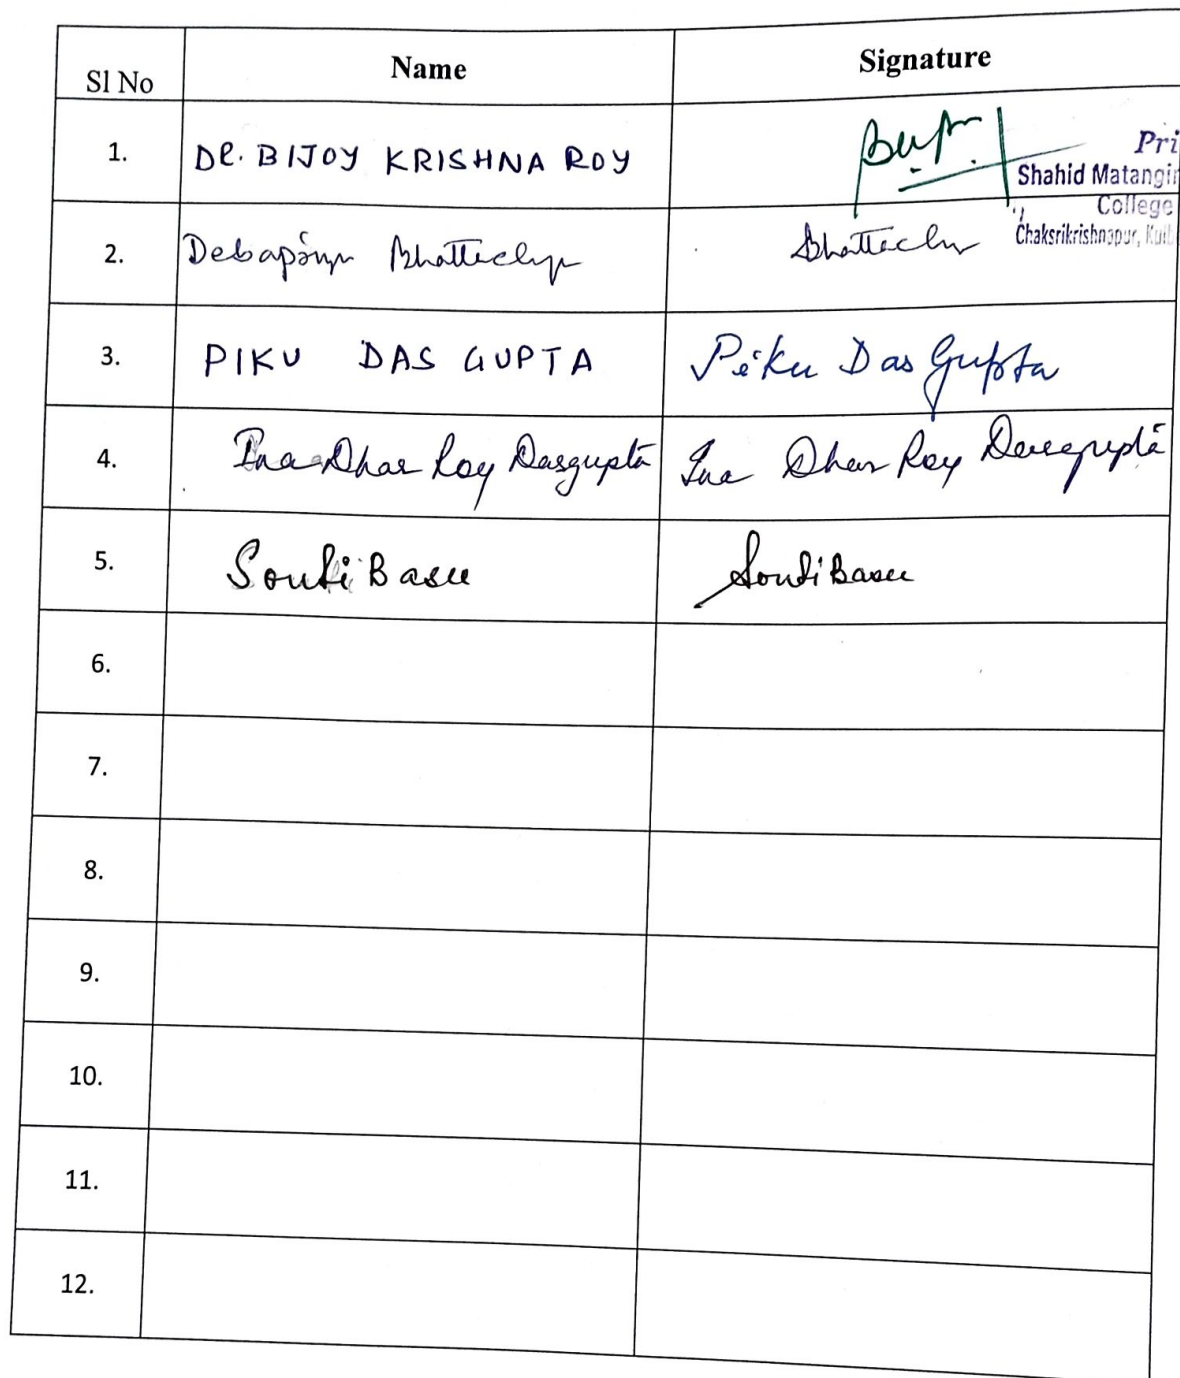 Sl No Name Signature
1. DR. BIJOY KRISHNA ROY
Pri
Shahid Matangin
College
Chaksrikrishnapur, Kulb
2. Bhattachy
3. PIKU DAS GUPTA Piku Das Gupta
4. Ina Dhar Roy Dasgupta Ina Dhar Roy Dasgupta
5. Souti Basu Souti Basu
6.
7.
8.
9.
10.
11.
12.